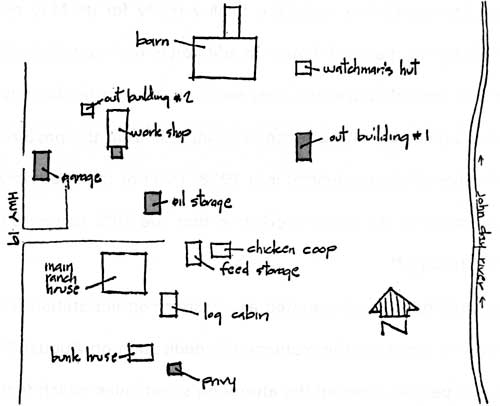 barn
watchman's hut
out building #2
work shop
out building #1
garage
oil storage
HWY 19
← John day river ←
chicken coop
feed storage
main
ranch
house
log cabin
N
bunk house
privy